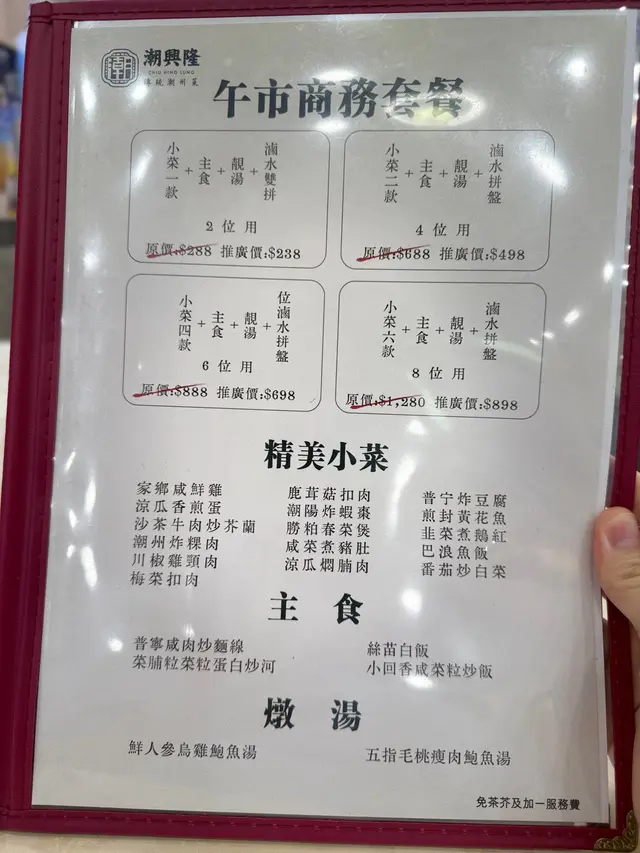 潮興隆
CHIU HING LUNG
傳統潮州菜
午市商務套餐
小菜一款 + 主食 + 靚湯 + 滷水雙拼
2 位用
原價:$288 推廣價:$238
小菜二款 + 主食 + 靚湯 + 滷水拼盤
4 位用
原價:$688 推廣價:$498
小菜四款 + 主食 + 靚湯 + 位滷水拼盤
6 位用
原價:$888 推廣價:$698
小菜六款 + 主食 + 靚湯 + 滷水拼盤
8 位用
原價:$1,280 推廣價:$898
精美小菜
家鄉咸鮮雞
涼瓜香煎蛋
沙茶牛肉炒芥蘭
潮州炸粿肉
川椒雞頸肉
梅菜扣肉
鹿茸菇扣肉
潮陽炸蝦棗
勝粕春菜煲
咸菜煮豬肚
涼瓜燜腩肉
普宁炸豆腐
煎封黃花魚
韭菜煮鵝紅
巴浪魚飯
番茄炒白菜
主食
普寧咸肉炒麵線
菜脯粒菜粒蛋白炒河
絲苗白飯
小回香咸菜粒炒飯
燉湯
鮮人參烏雞鮑魚湯
五指毛桃瘦肉鮑魚湯
免茶芥及加一服務費